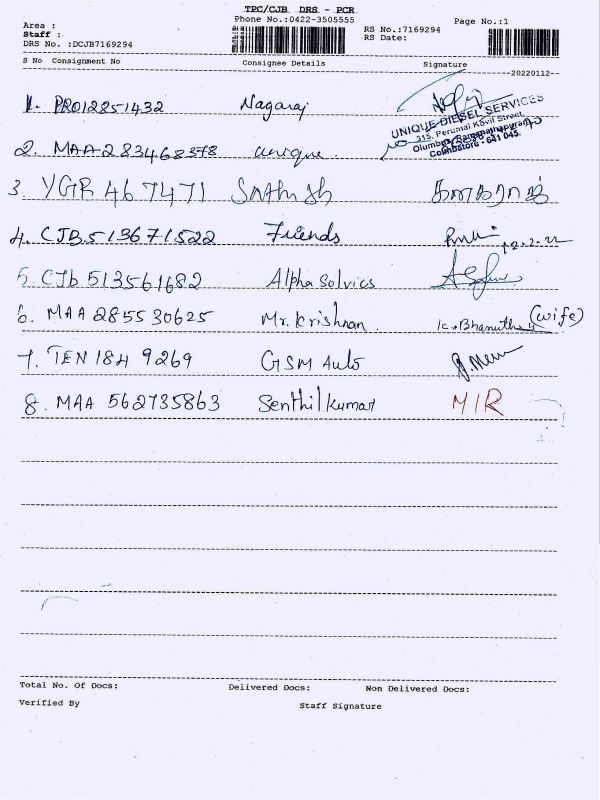 TPC/CJB DRS - PCR
Area :
Phone No.:0422-3505555
Page No.:1
Staff :
RS No.:7169294
DRS No. :DCJB7169294
RS Date:
S No Consignment No Consignee Details Signature
--20220112--
1. PRO12851432 Nagaraj
UNIQUE DIESEL SERVICES
315, Perumal Kovil Street,
Olumbus, Ramanathapuram,
Coimbatore - 641 045.
2. MAA283468378 unique
3. YGR 467471 Sathish கனகராஜ்
4. CJB513671522 Friends 12-2-22
5. CJb 513561682 Alpha Solvics
6. MAA 285530625 Mr. Krishnan (wife)
7. TEN 184 9269 GSM Auto
8. MAA 562735863 Senthilkumar M/R
Total No. Of Docs: Delivered Docs: Non Delivered Docs:
Verified By Staff Signature